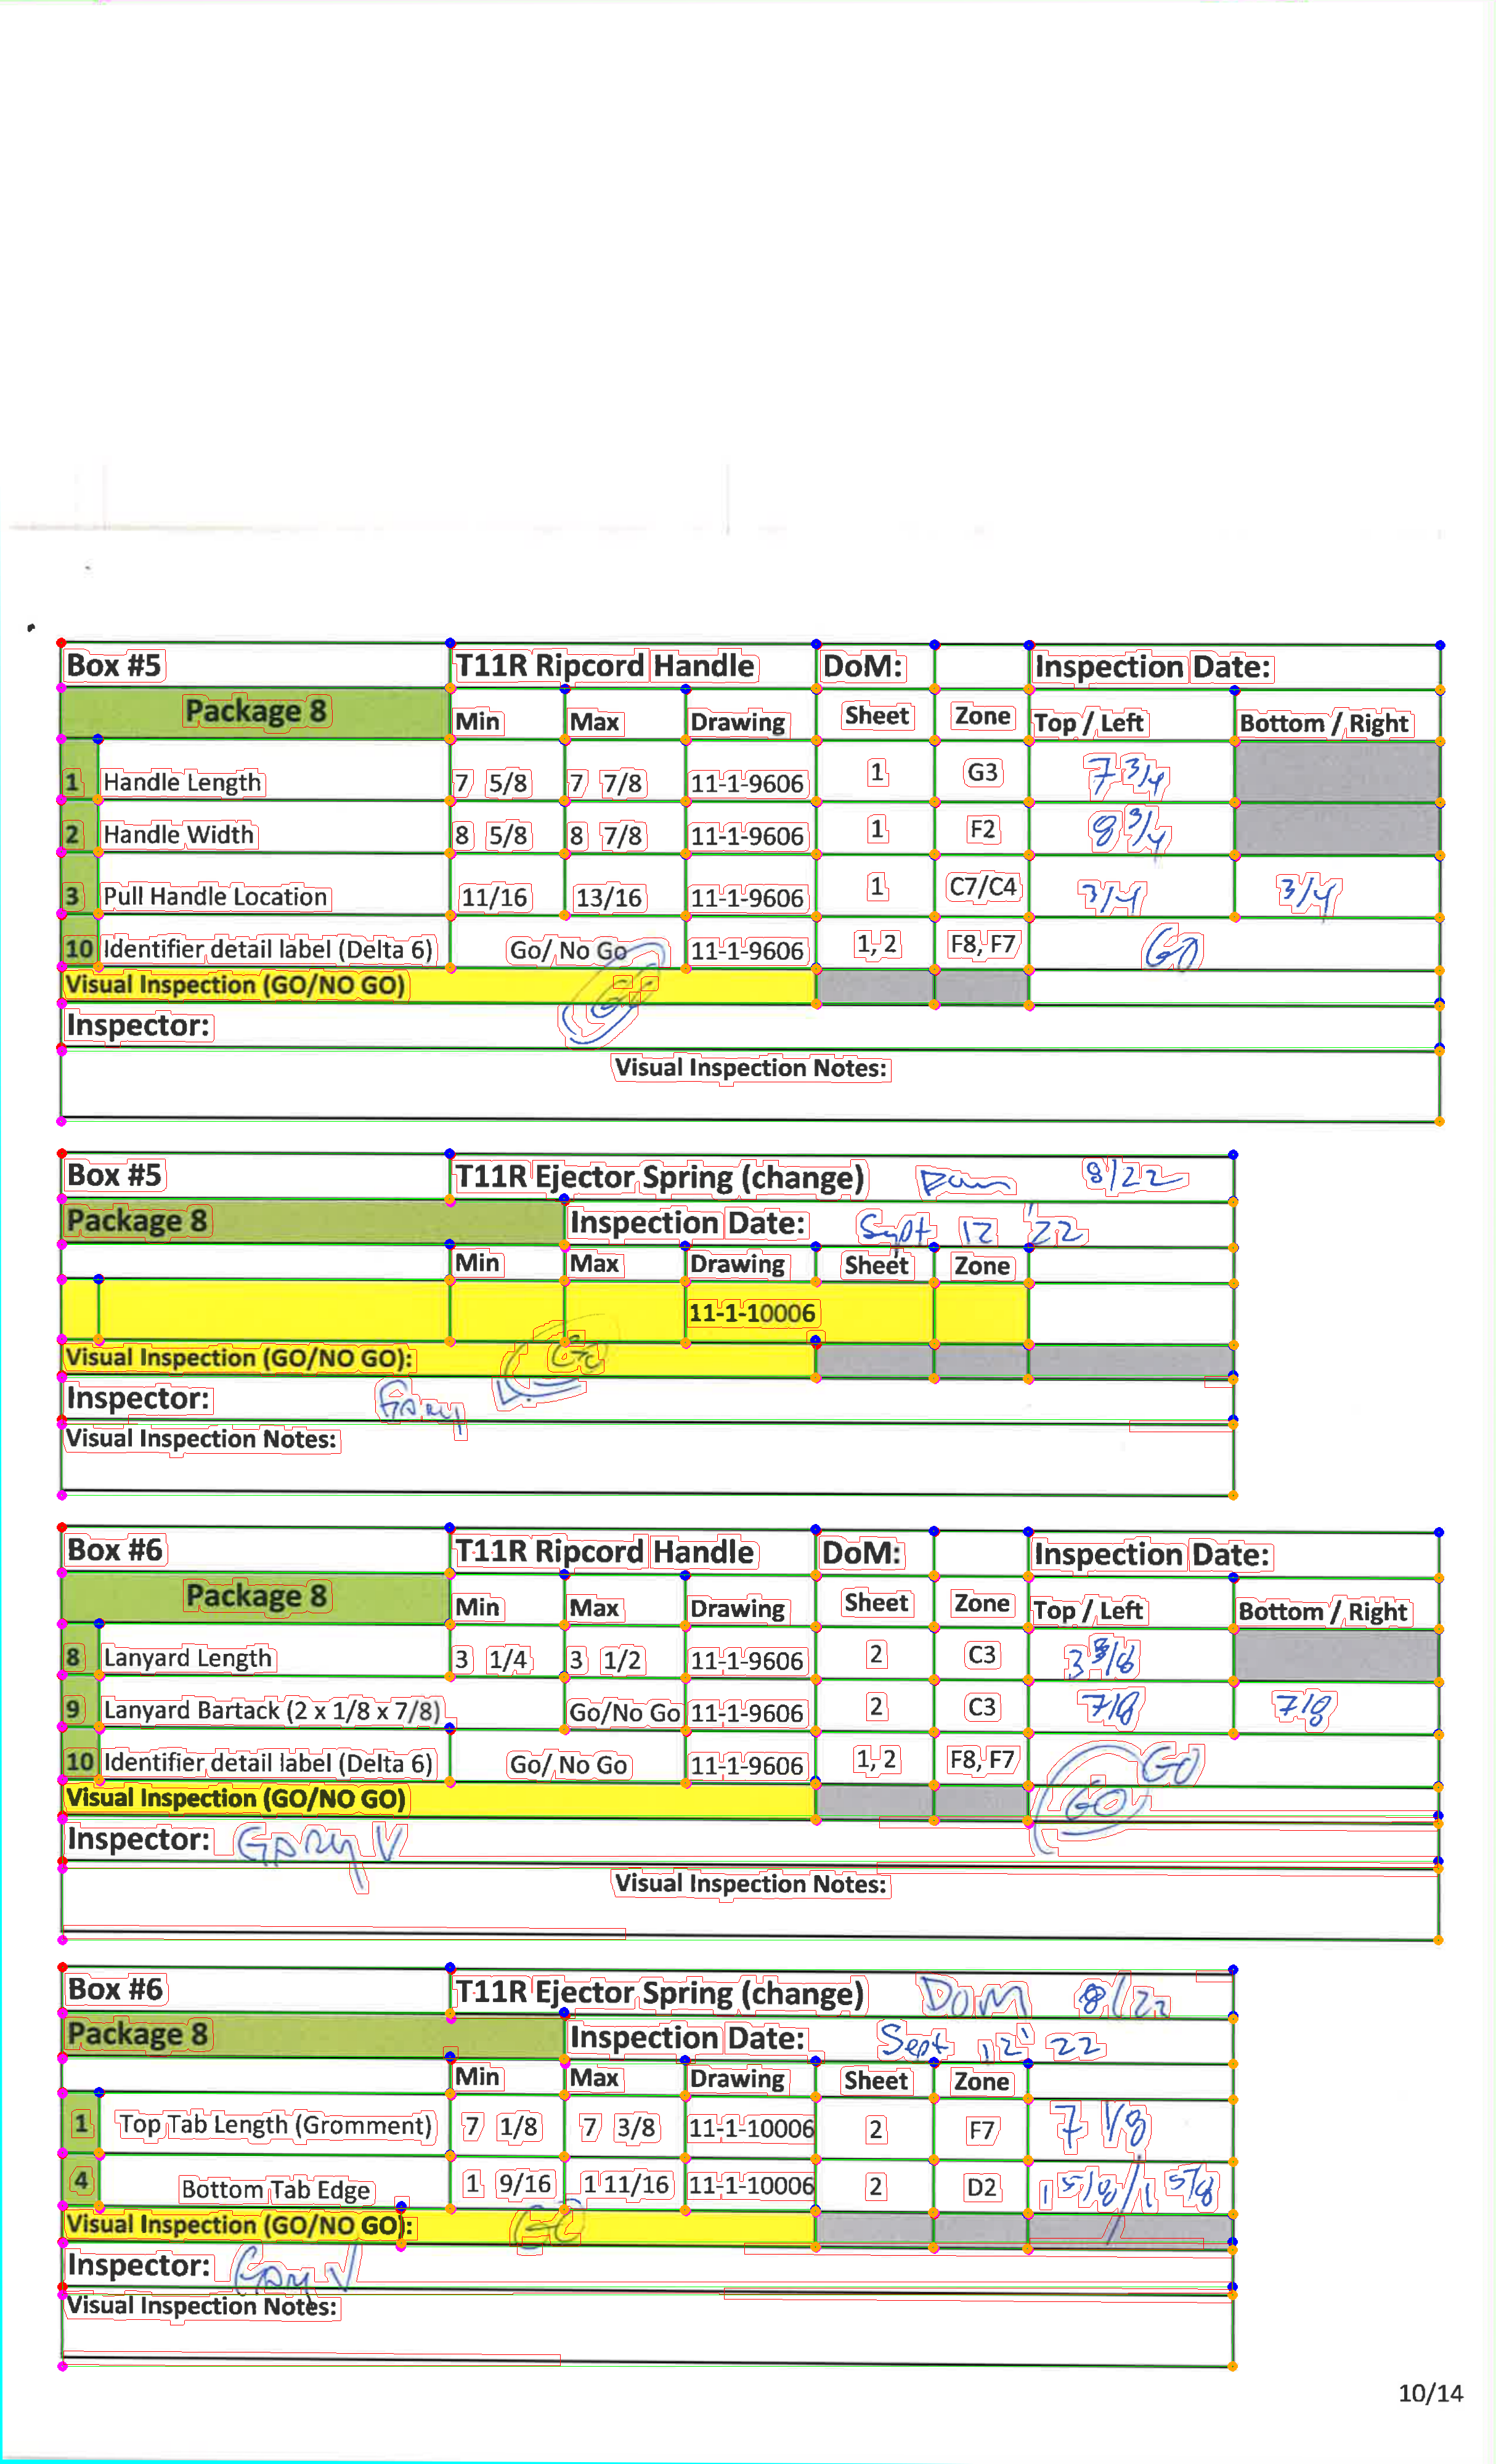 Box #5 T11R Ripcord Handle DoM: Inspection Date:
Package 8 Min Max Drawing Sheet Zone Top / Left Bottom / Right
1 Handle Length 7 5/8 7 7/8 11-1-9606 1 G3 7 3/4
2 Handle Width 8 5/8 8 7/8 11-1-9606 1 F2 8 3/4
3 Pull Handle Location 11/16 13/16 11-1-9606 1 C7/C4 3/4 3/4
10 Identifier detail label (Delta 6) Go/ No Go 11-1-9606 1, 2 F8, F7 GO
Visual Inspection (GO/NO GO) Go
Inspector:
Visual Inspection Notes:
Box #5 T11R Ejector Spring (change) 8/22
Package 8 Inspection Date: Sept 12 '22
Min Max Drawing Sheet Zone
11-1-10006
Visual Inspection (GO/NO GO): Go
Inspector: Gary
Visual Inspection Notes:
Box #6 T11R Ripcord Handle DoM: Inspection Date:
Package 8 Min Max Drawing Sheet Zone Top / Left Bottom / Right
8 Lanyard Length 3 1/4 3 1/2 11-1-9606 2 C3
9 Lanyard Bartack (2 x 1/8 x 7/8) Go/No Go 11-1-9606 2 C3 7/8 7/8
10 Identifier detail label (Delta 6) Go/ No Go 11-1-9606 1, 2 F8, F7 GO
Visual Inspection (GO/NO GO) GO
Inspector: GARY V
Visual Inspection Notes:
Box #6 T11R Ejector Spring (change) DOM 8/22
Package 8 Inspection Date: Sept 12 ' 22
Min Max Drawing Sheet Zone
1 Top Tab Length (Gromment) 7 1/8 7 3/8 11-1-10006 2 F7 7 1/8
4 Bottom Tab Edge 1 9/16 1 11/16 11-1-10006 2 D2 1 5/8 / 1 5/8
Visual Inspection (GO/NO GO): GO
Inspector: Gary V
Visual Inspection Notes:
10/14